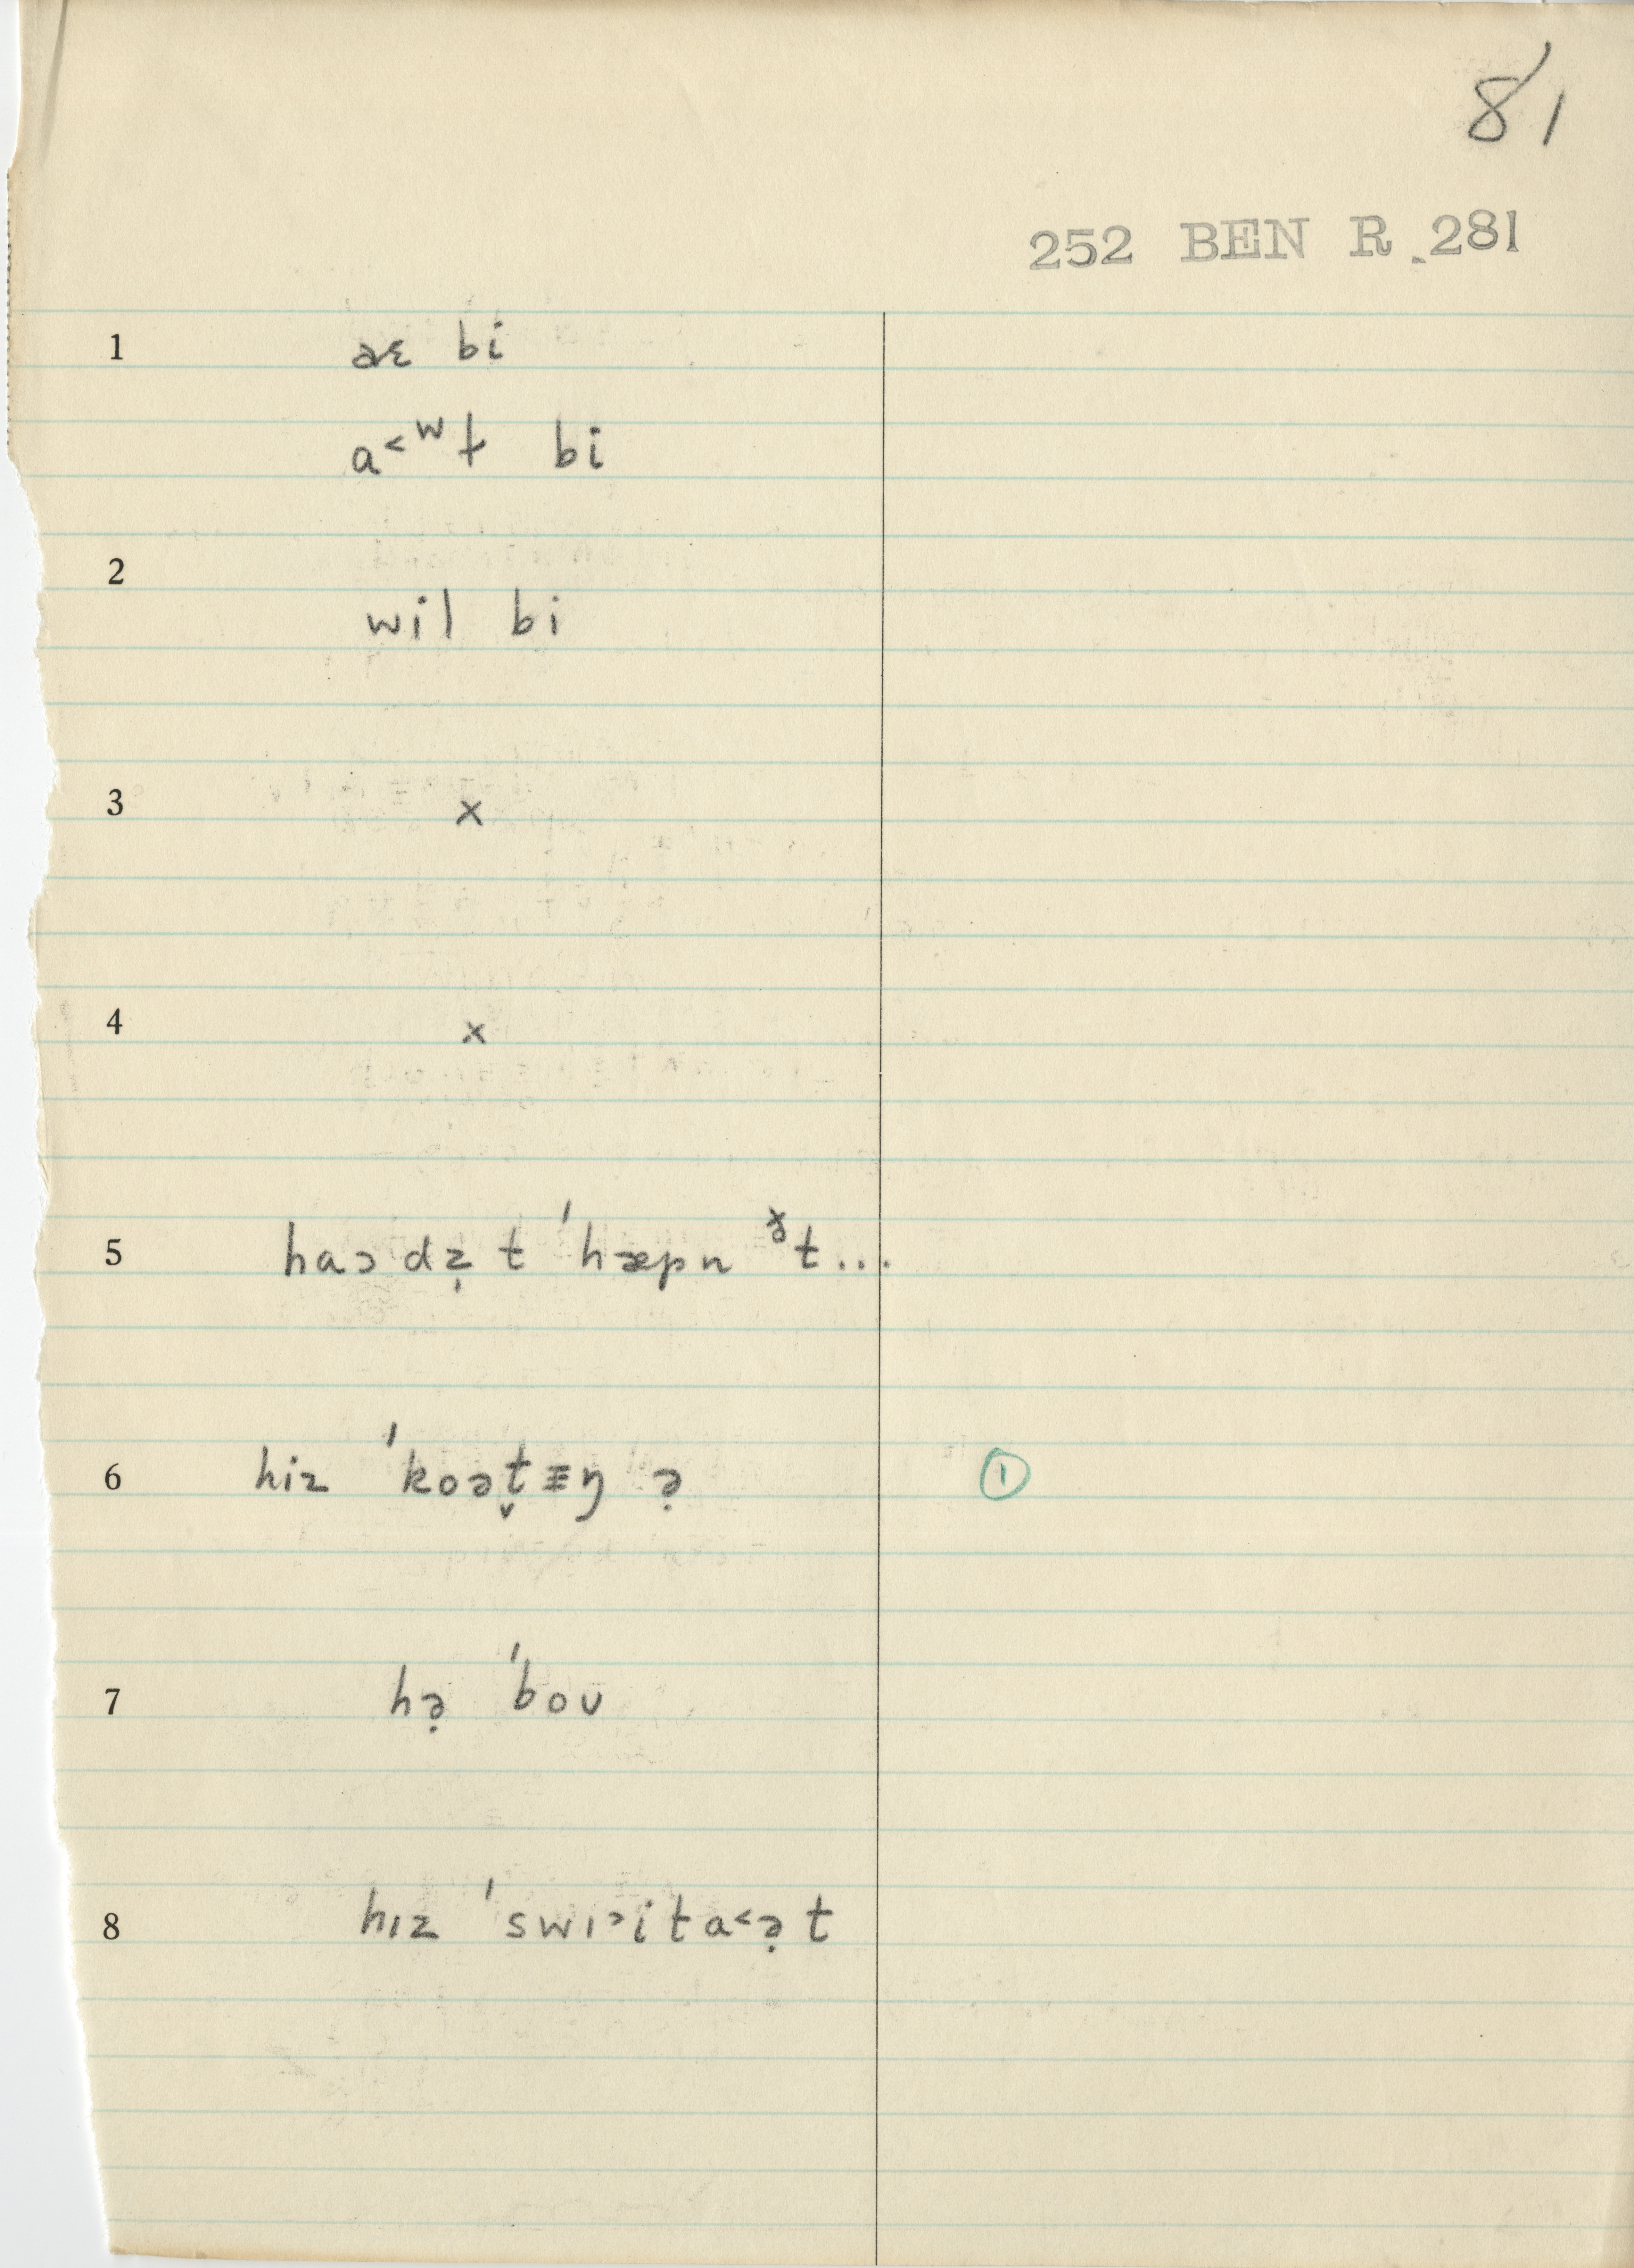 81
252 BEN R.281
1 æɛ bi
a˂ʷɫ bi
2
wil bi
3 x
4 x
5 haɔdẓ t ˈhæpn ᵊ̌t...
6 hiz ˈkoət̬ɪŋ ə̣ ①
7 hə̣ ˈboʊ
8 hɪz ˈswɪ˃ita˂ə̣t